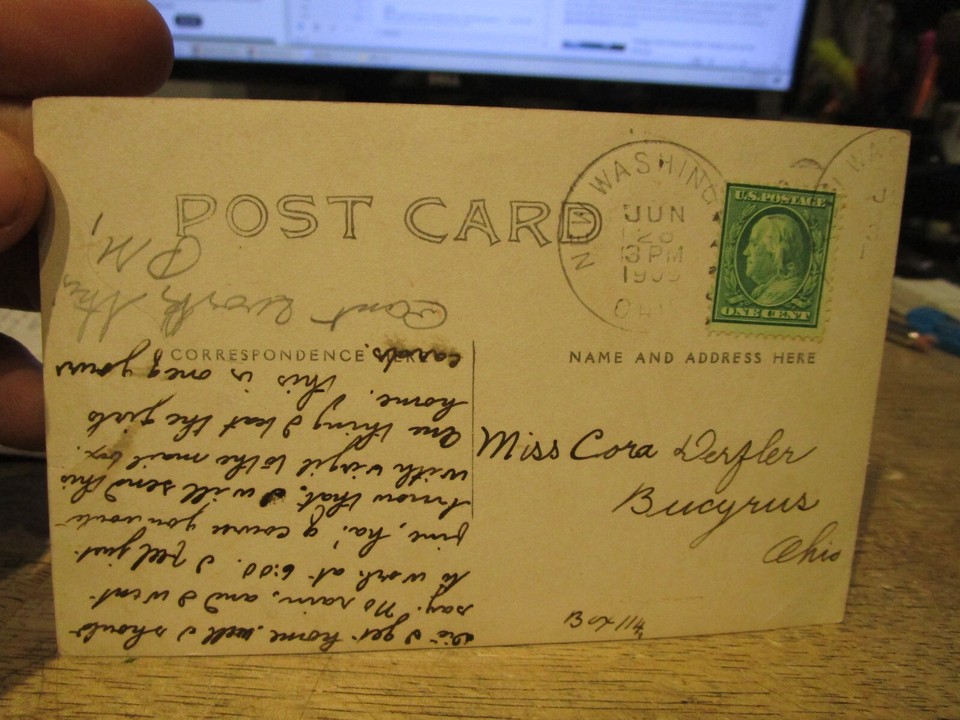 POST CARD
N. WASHING
JUN
28
3 PM
OHI
U.S. POSTAGE
ONE CENT
CORRESPONDENCE HERE
NAME AND ADDRESS HERE
Miss Cora Derfler
Bucyrus
Ohio
Box 114
Did I get home. well I should
say. No rain, and I went
to work at 6:00. I feel just
fine, ha! of course you wont
know that. I will send this
with Virgil to the mail box.
One thing I beat the girls
home. This is one of yours
cards.
Cant work this
PM,